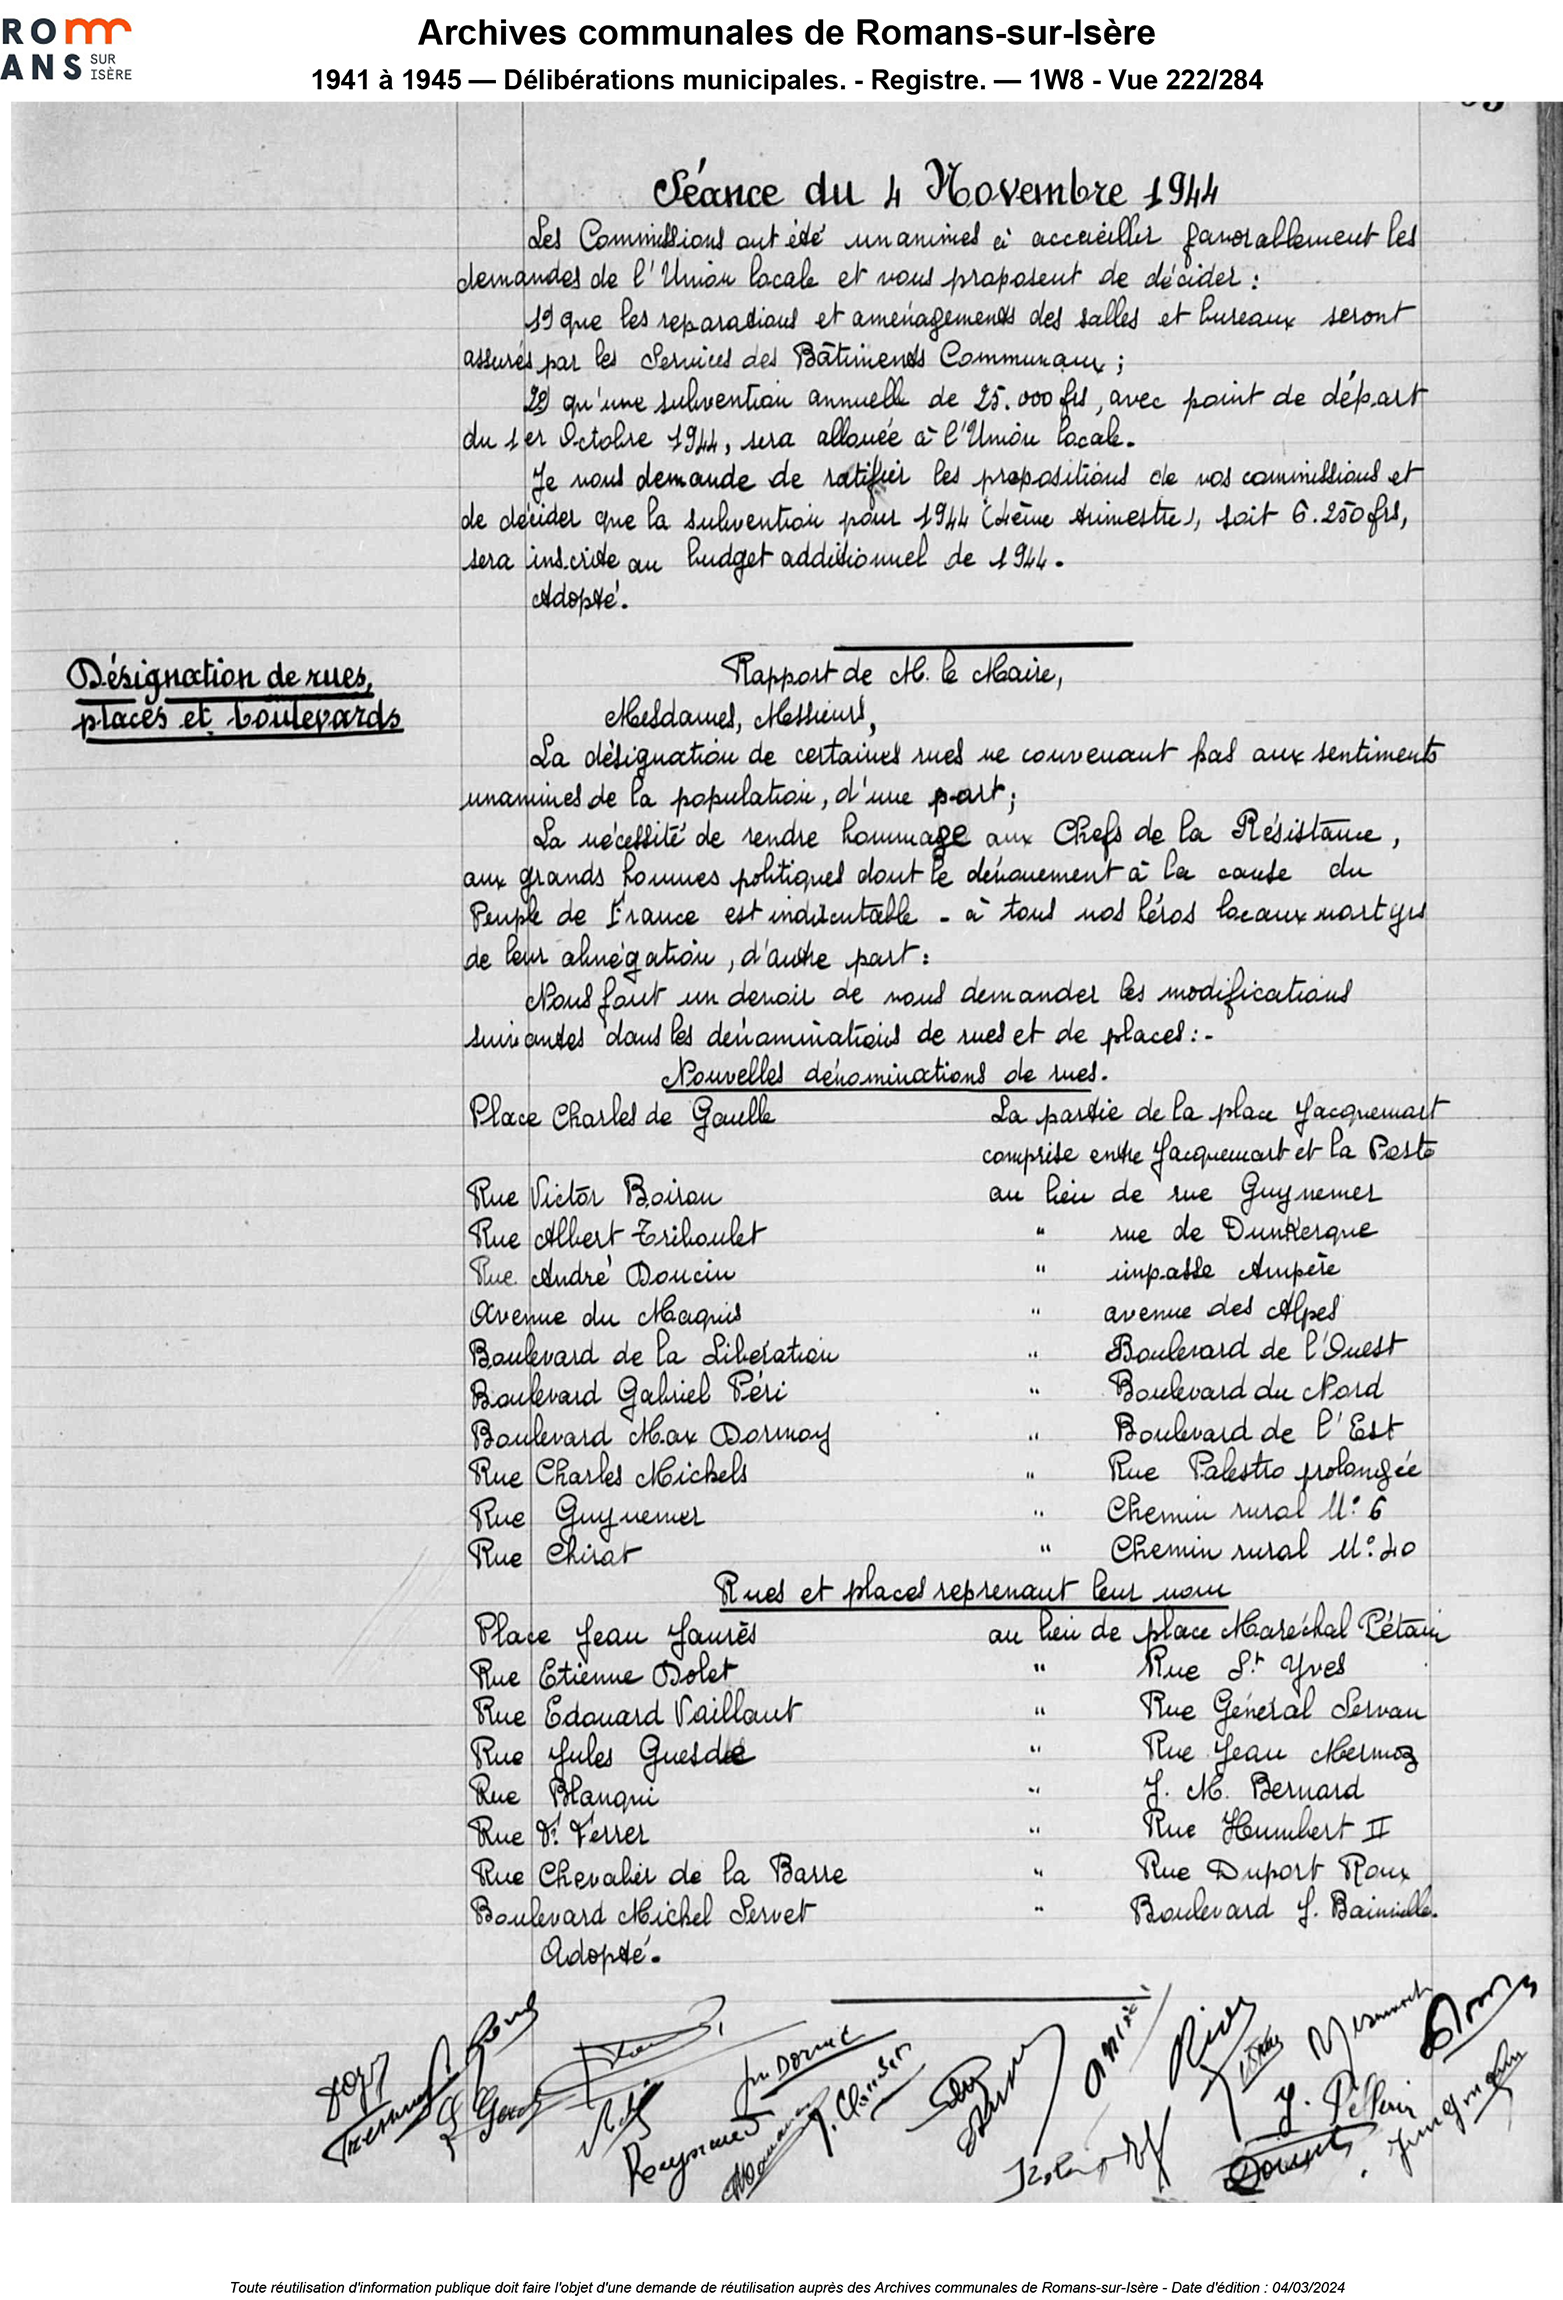 ROMANS SUR ISÈRE
Archives communales de Romans-sur-Isère
1941 à 1945 — Délibérations municipales. - Registre. — 1W8 - Vue 222/284
Séance du 4 Novembre 1944
Les Commissions ont été unanimes à accueillir favorablement les
demandes de l'Union locale et vous proposent de décider :
1º que les reparations et aménagements des salles et bureaux seront
assurés par les Services des Bâtiments Communaux ;
2º) qu'une subvention annuelle de 25.000 frs, avec point de départ
du 1er Octobre 1944, sera allouée à l'Union locale.
Je vous demande de ratifier les propositions de vos commissions et
de décider que la subvention pour 1944 (4ème trimestre), soit 6.250 frs,
sera inscrite au budget additionnel de 1944.
Adopté.
Désignation de rues,
places et boulevards
Rapport de M. le Maire,
Mesdames, Messieurs,
La désignation de certaines rues ne convenant pas aux sentiments
unanimes de la population, d'une part ;
La nécessité de rendre hommage aux Chefs de la Résistance,
aux grands hommes politiques dont le dévouement à la cause du
Peuple de France est indiscutable - à tous nos héros locaux martyrs
de leur abnégation, d'autre part :
Nous font un devoir de vous demander les modifications
suivantes dans les dénominations de rues et de places :-
Nouvelles dénominations de rues.
Place Charles de Gaulle La partie de la place Jacquemart
comprise entre Jacquemart et la Poste
Rue Victor Boiron au lieu de rue Guynemer
Rue Albert Triboulet " rue de Dunkerque
Rue André Doucin " impasse Ampère
Avenue du Maquis " avenue des Alpes
Boulevard de la Libération " Boulevard de l'Ouest
Boulevard Gabriel Péri " Boulevard du Nord
Boulevard Max Dormoy " Boulevard de l'Est
Rue Charles Michels " Rue Palestro prolongée
Rue Guynemer " Chemin rural Nº 6
Rue Chirat " Chemin rural Nº 20
Rues et places reprenant leur nom
Place Jean Jaurès au lieu de place Maréchal Pétain
Rue Etienne Dolet " Rue St Yves
Rue Edouard Vaillant " Rue Général Servan
Rue Jules Guesde " Rue Jean Mermoz
Rue Blanqui " J. M. Bernard
Rue F. Ferrer " Rue Humbert II
Rue Chevalier de la Barre " Rue Duport Roux
Boulevard Michel Servet " Boulevard J. Bainville.
Adopté.
Toute réutilisation d'information publique doit faire l'objet d'une demande de réutilisation auprès des Archives communales de Romans-sur-Isère - Date d'édition : 04/03/2024